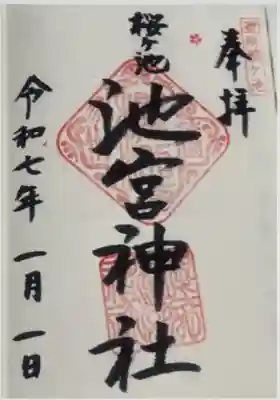 奉拝
桜ヶ池
池宮神社
令和七年 一月 一日